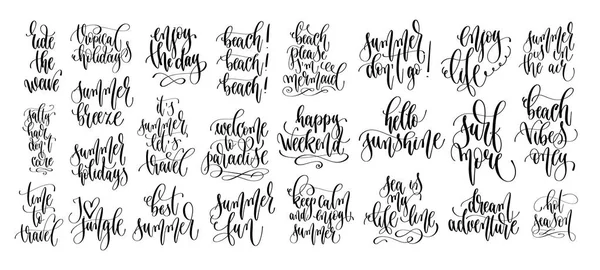 ride
the
wave
tropical
holidays
enjoy
the day
beach!
beach!
beach!
beach
please
i'm a
mermaid
summer
don't go!
enjoy
life
summer
is in
the air
salty
hair
don't
care
summer
breeze
summer
holidays
it's
summer,
let's
travel
welcome
to
paradise
happy
weekend
hello
sunshine
surf
more
beach
vibes
only
time
to
travel
jungle
best
summer
summer
fun
keep calm
and enjoy
summer
sea is
my
life line
dream
adventure
hot
season